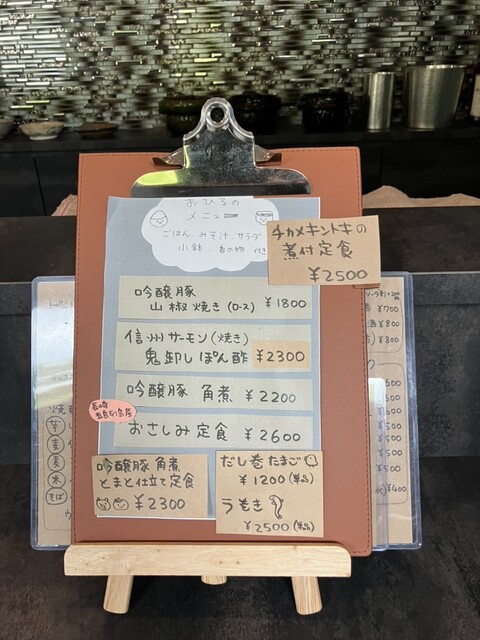 おひるの
メニュー
ごはん、みそ汁、サラダ
小鉢、香の物 付き
チカメキントキの
煮付定食
¥2500
吟醸豚
山椒焼き(ロース) ¥1800
信州サーモン(焼き)
鬼卸しぽん酢 ¥2300
吟醸豚 角煮 ¥2200
長崎
五島列島産
おさしみ定食 ¥2600
吟醸豚 角煮
とまと仕立て定食
¥2300
だし巻たまご
¥1200(単品)
うまき
¥2500(単品)
¥700
¥800
¥800
芋
麦
麦
米
そば
¥400